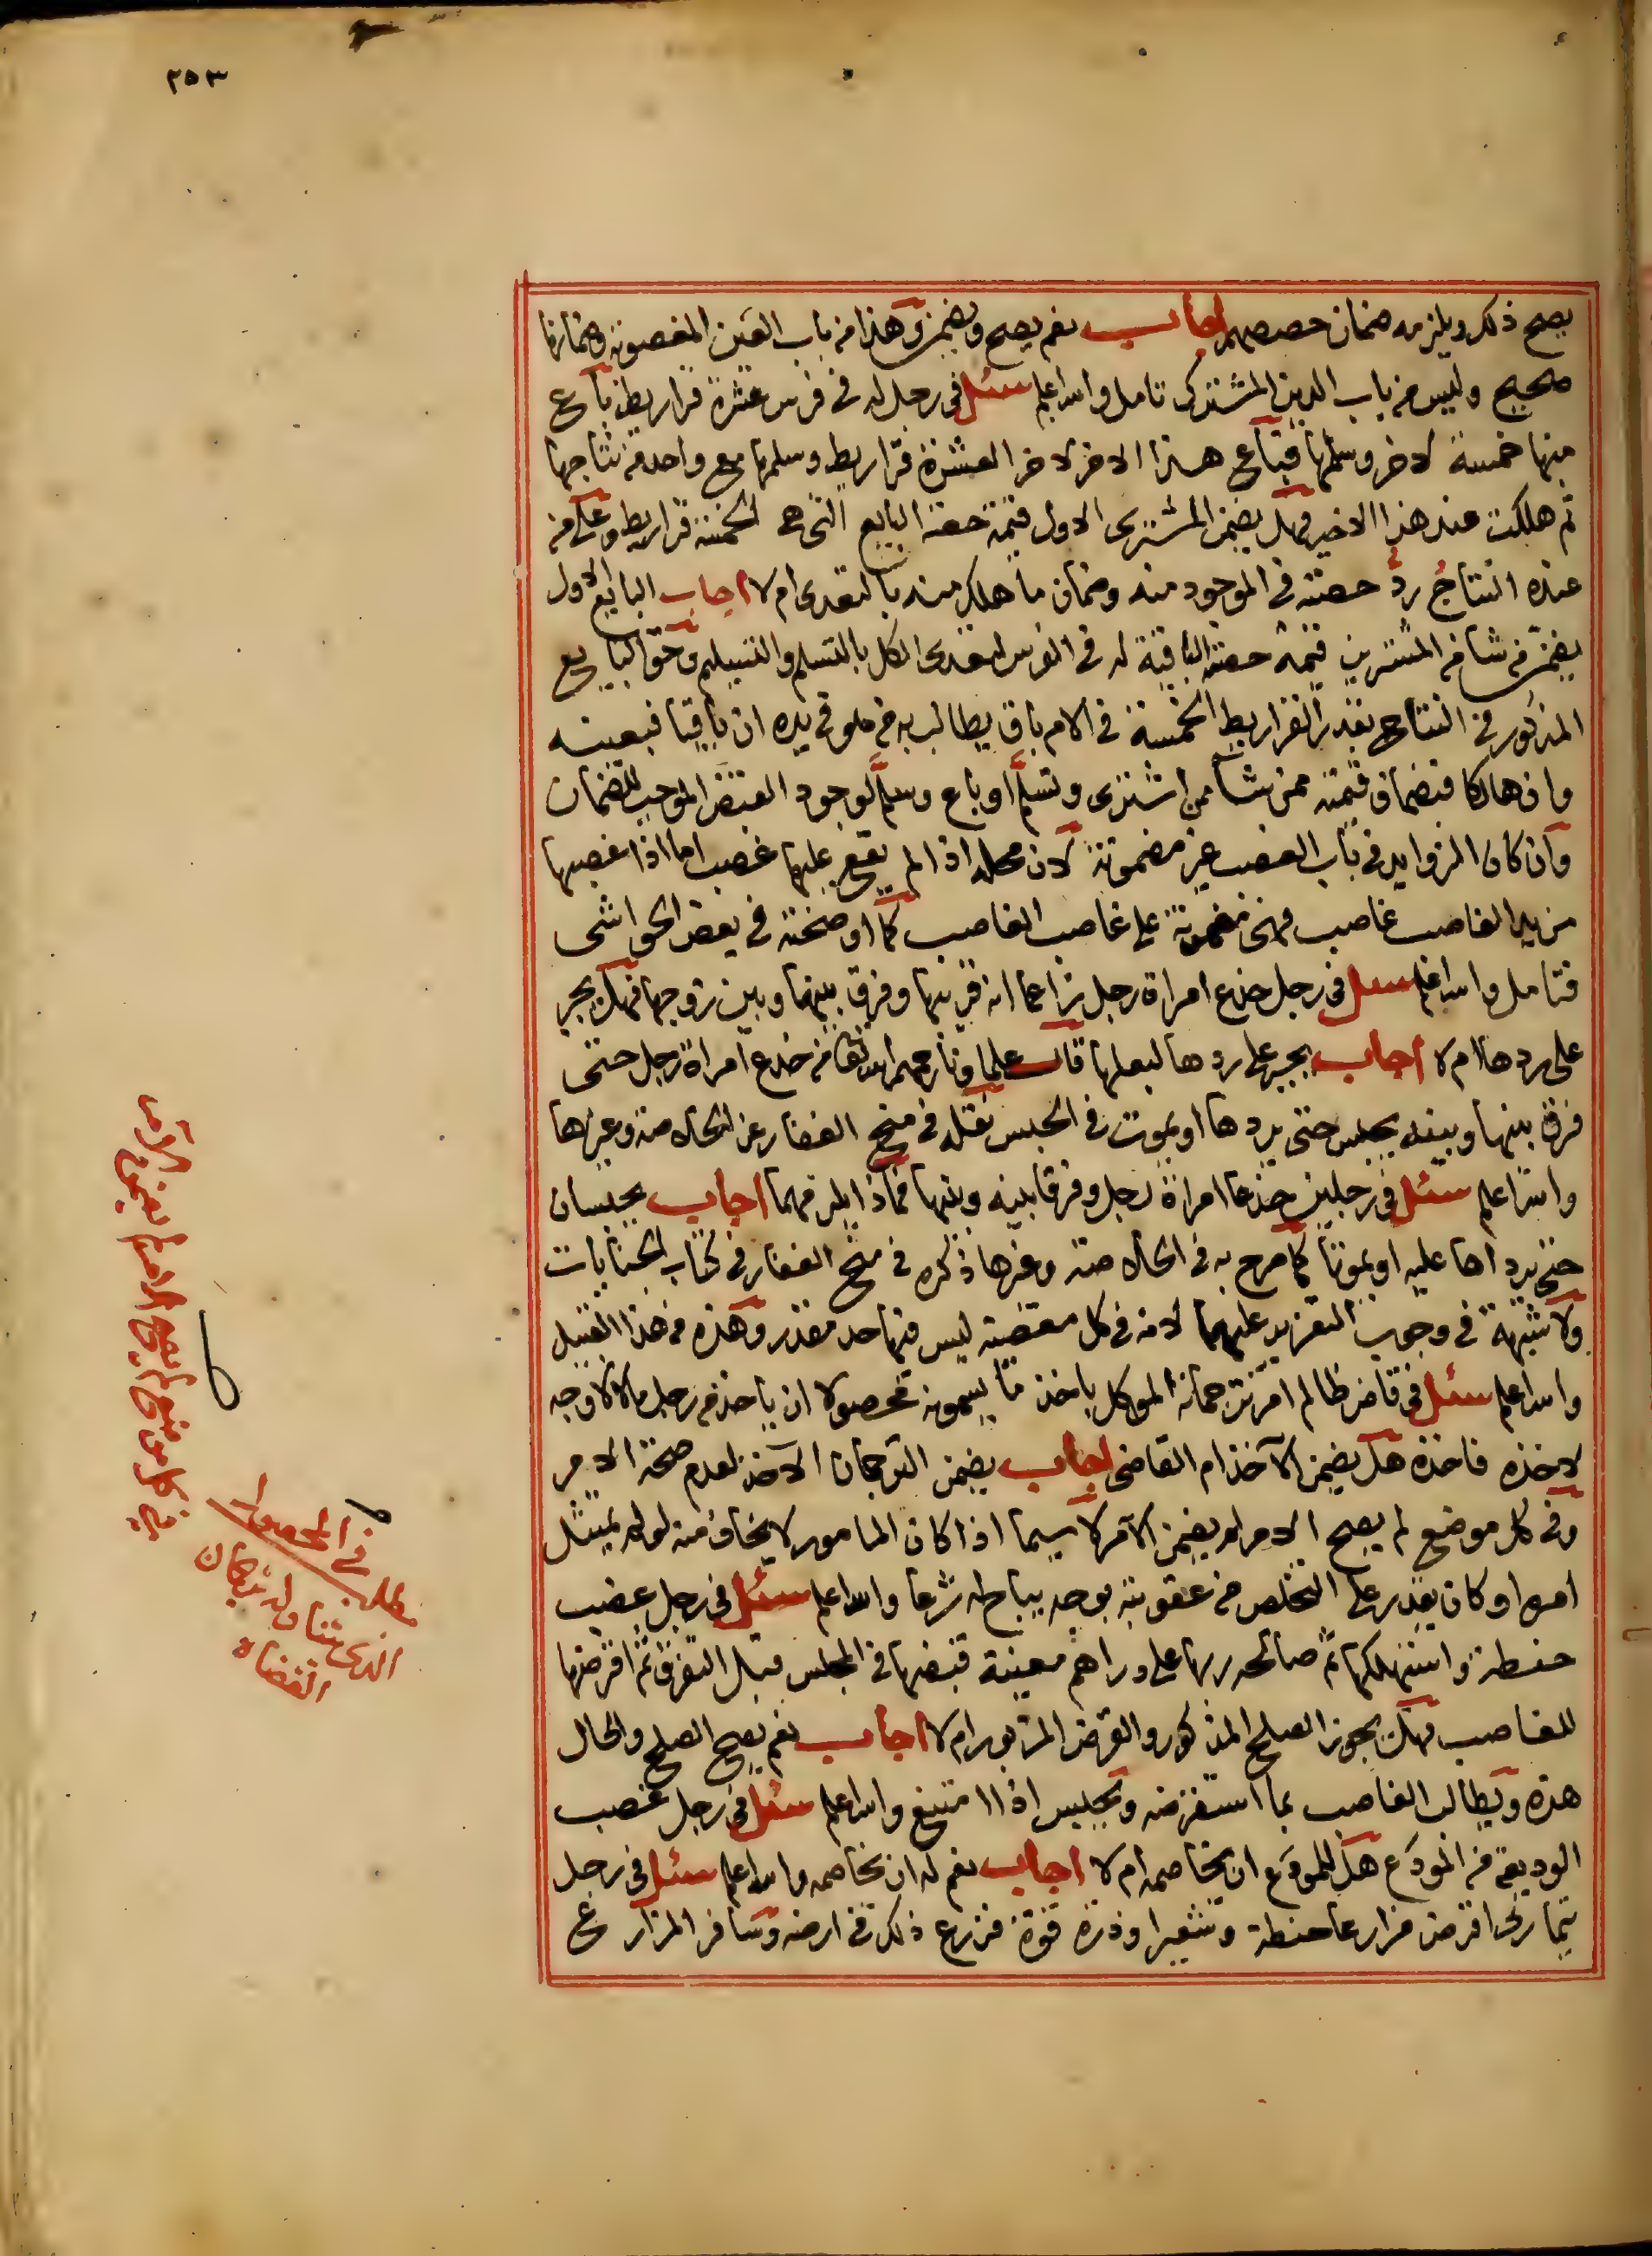 ٢٥٣
يصح ذلك ويلزمه ضمان حصصهم اجاب نعم يصح ويضمن وهذا من باب العين المغصوبة وضمانها
صحيح وليس من باب الدين المشترك تامل والله اعلم سئل في رجل له في فرس عشرة قراريط باع
منها خمسة لاخر وسلمها فباع هذا الاخر لاخر العشرة قراريط وسلمها مع واحد من نتاجها
ثم هلكت عند هذا الاخير فهل يضمن المشتري الاول قيمة حصة البايع التي هي الخمسة قراريط وعلى من
عنده النتاج رد حصته في الموجود منه وضمان ما هلك منه بالتعدي ام لا اجاب البايع الاول
يضمن من شا من المشتريين قيمة حصته الباقية له في الفرس لتعدي الكل بالتسلم والتسليم وحق البايع
المذكور في النتاج بقدر القراريط الخمسة في الام باق يطالب به من هو في يده ان باقيا فبعينه
وان هالكا فبضمان قيمته ممن شا ممن اشترى وتسلم او باع وسلم لوجود الغصب الموجب للضمان
وان كان الزوايد في باب الغصب غير مضمونة لان محله اذا لم يقع عليها غصب اما اذا غصبها
من يد الغاصب غاصب فهي مضمونة على غاصب الغاصب كما اوضحته في بعض الحواشي
فتامل والله اعلم سئل في رجل خدع امراة رجل زاعما انه قريبها وفرق بينها وبين زوجها فهل يجبر
على ردها ام لا اجاب يجبر على ردها لبعلها قال علماونا رحمهم الله تعالى من خدع امراة رجل حتى
فرق بينها وبينه يحبس حتى يردها او يموت في الحبس نقله في منح الغفار عن الخلاصة وغيرها
والله اعلم سئل في رجلين خدعا امراة رجل وفرقا بينه وبينها فماذا يلزمهما اجاب يحبسان
حتى يرداها عليه او يموتا كما صرح به في الخلاصة وغيرها ذكره في منح الغفار في كتاب الجنايات
ولا شبهة في وجوب التعزير عليهما لانه في كل معصية ليس فيها حد مقدر وهذه من هذا القبيل
والله اعلم سئل في قاض ظالم امر ترجمانه الموكل باخذ ما يسمونه محصولا ان ياخذ من رجل مالا لا وجه
لاخذه فاخذه هل يضمن الآخذ ام القاضي اجاب يضمن الترجمان الآخذ لعدم صحة الامر
وفي كل موضع لم يصح الامر لم يضمن الآمر لا سيما اذا كان المامور لا يخاف منه لو لم يمتثل
امره او كان يقدر على التخلص من عقوبته بوجه يباح له شرعا والله اعلم سئل في رجل غصب
حنطة واستهلكها ثم صالحه ربها على دراهم معينة قبضها في المجلس قبل التفرق ثم اقرضها
للغاصب فهل يجوز الصلح المذكور والقرض المزبور ام لا اجاب نعم يصح الصلح والحال
هذه ويطالب الغاصب بما استقرضه ويحبس اذا امتنع والله اعلم سئل في رجل غصب
الوديعة من المودَع هل للمودَع ان يخاصمه ام لا اجاب نعم له ان يخاصمه والله اعلم سئل في رجل
تيماري اقرض مزارعا حنطة وشعيرا وذرة قوة فزرع ذلك في ارضه وسافر المزارع
في كل موضع لم يصح الامر لم يضمن الآمر
مطلب في المحصول
الذي تتناوله ترجمان
القضاة